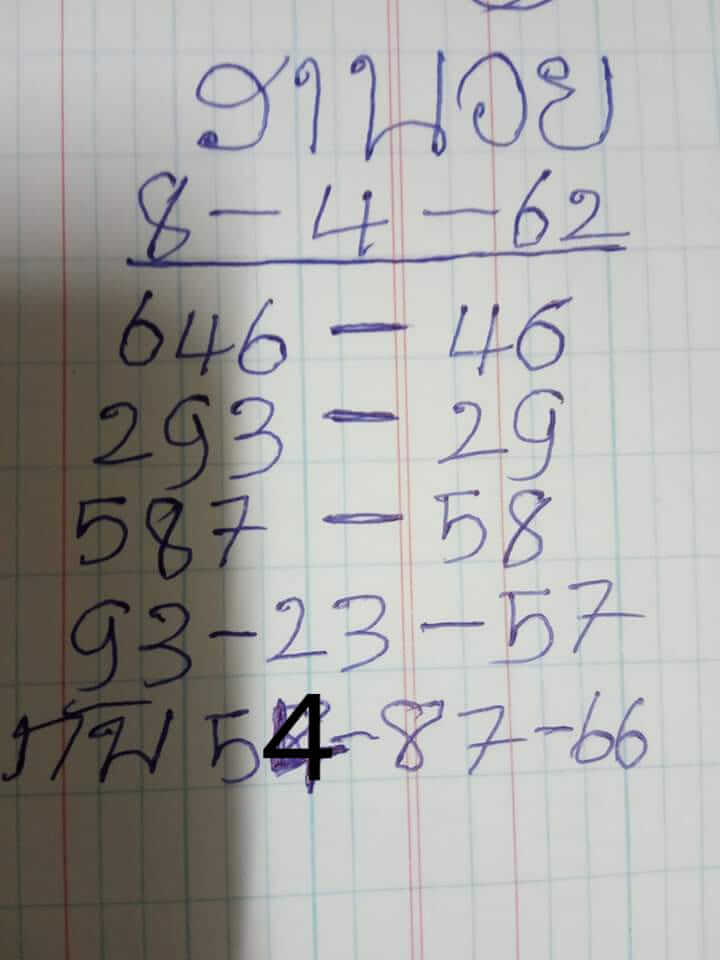 ฮานอย
8-4-62
646 - 46
293 - 29
587 - 58
93-23-57
54-87-66